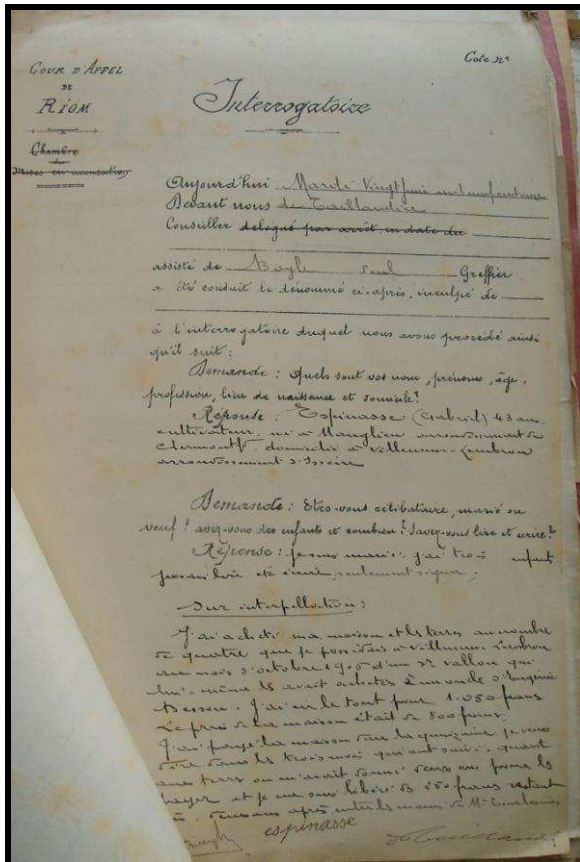 Cote n°
COUR D'APPEL
DE
RIOM
Chambre
des
Mises en accusation
Interrogatoire
Aujourd'hui Mardi Vingt Juin
Devant nous de Taillandier
Conseiller délégué par arrêt, en date du
assisté de Greffier
a été conduit le dénommé ci-après, inculpé de
à l'interrogatoire duquel nous avons procédé ainsi
qu'il suit :
Demande : Quels sont vos nom, prénoms, âge,
profession, lieu de naissance et domicile ?
Réponse : Espinasse (Gabriel) 43 ans,
cultivateur, né à Manglieu arrondissement de
Clermont F. domicilié à Villeneuve-Lembron
arrondissement d'Issoire
Demande : Etes-vous célibataire, marié ou
veuf ? avez-vous des enfants et combien ? Savez-vous lire et écrire ?
Réponse : Je suis marié ; j'ai trois enfants
seulement signer.
Sur interpellation :
J'ai acheté ma maison et les terres au nombre
de quatre que je possède à Villeneuve-Lembron
au mois d'octobre d'un Sr Vallon qui
lui-même les avait achetés
J'ai eu le tout pour 1.050 francs
Le prix de la maison était de 800 francs.
J'ai payé la maison dans la quinzaine je veux
dire dans les trois mois qui ont suivi. quant
aux terres on m'avait donné deux ans pour les
payer et je me suis libéré des 250 francs restant
deux ans après entre les mains de Me
espinasse